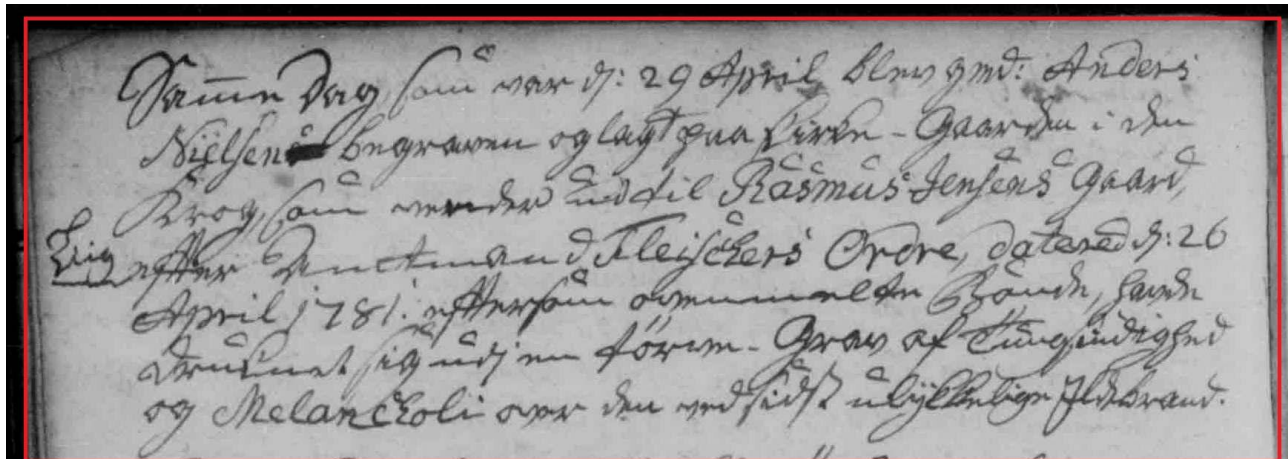 Samme Dag, som var d: 29 April blev gmd: Anders
Nielsen begraven og lagt paa Kirke-Gaarden i den
Krog, som vender ud til Rasmus Jensens Gaard,
Liig efter Amtmand Fleischers Ordre, datered d: 26
April 1781. eftersom ovenmelte Bonde, hafde
druknet sig udj en törve-Grav af Tungsindighed
og Melancholi over den ved sidst ulykkelige Ildebrand.